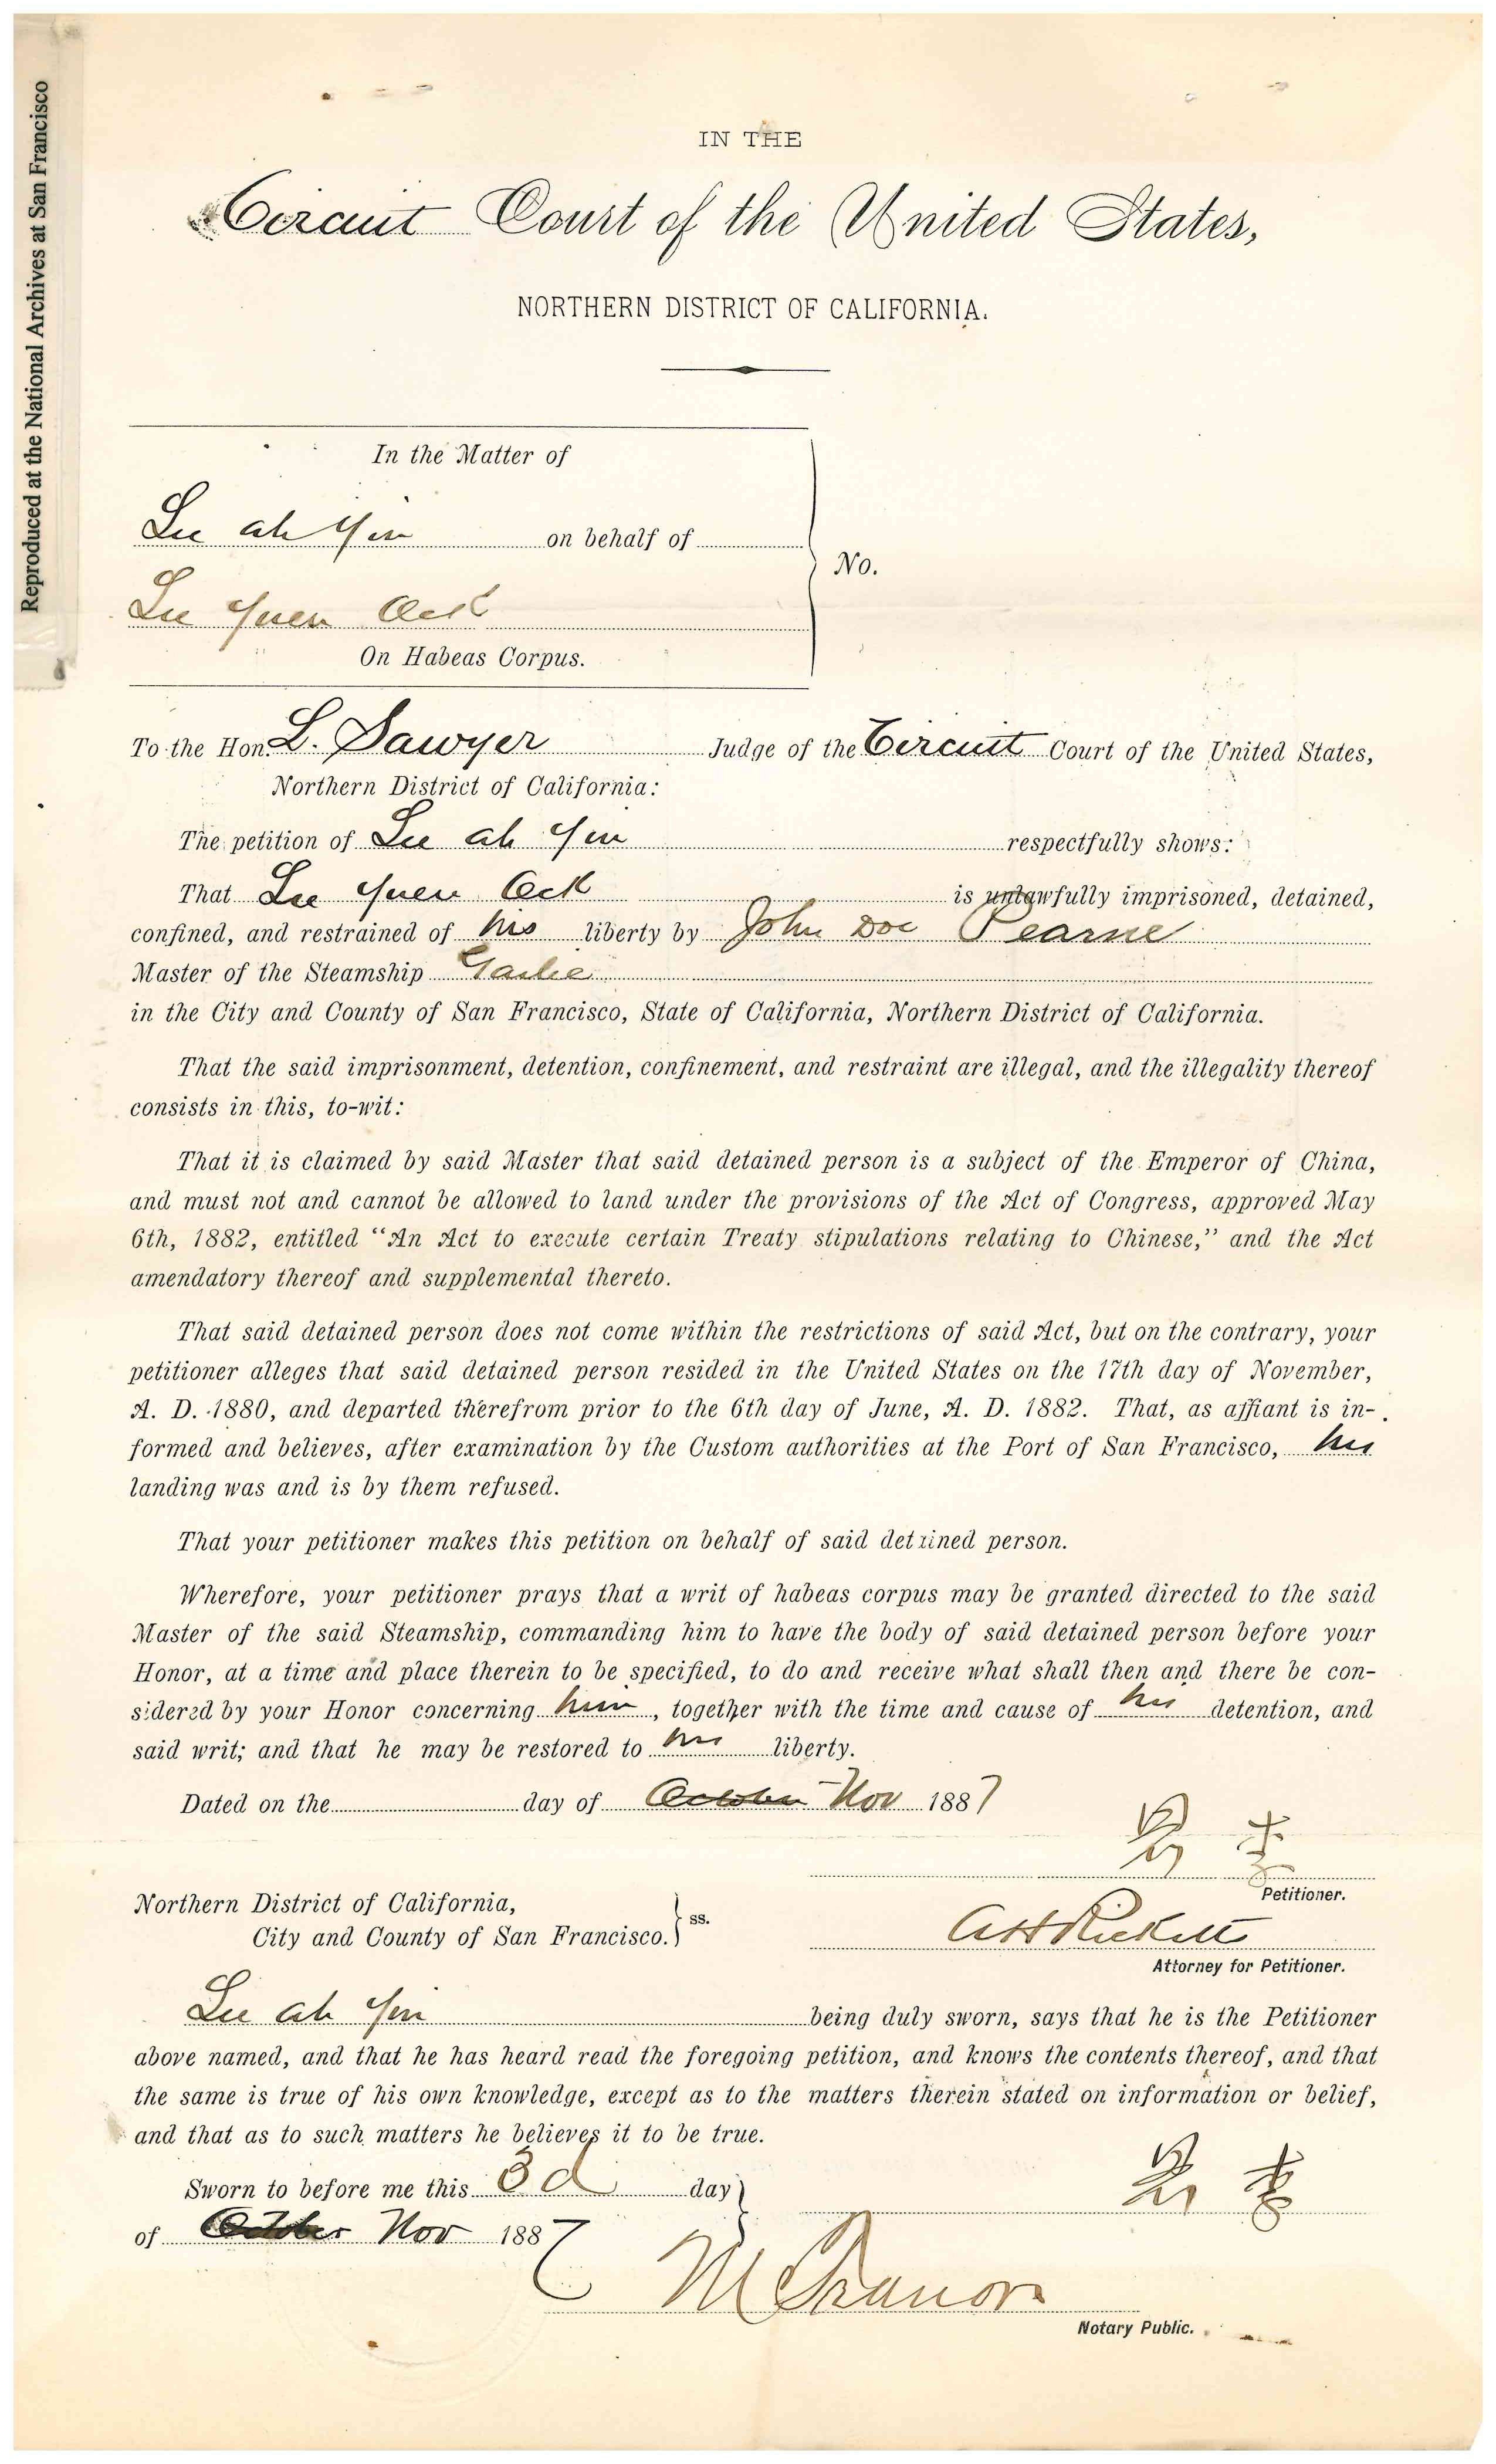 Reproduced at the National Archives at San Francisco
IN THE
Circuit Court of the United States,
NORTHERN DISTRICT OF CALIFORNIA.
In the Matter of
Lee Ah Yin on behalf of
Lee Yuen Ock
On Habeas Corpus.
No.
To the Hon. L. Sawyer Judge of the Circuit Court of the United States,
Northern District of California:
The petition of Lee Ah Yin respectfully shows:
That Lee Yuen Ock is unlawfully imprisoned, detained,
confined, and restrained of his liberty by John Doe Pearne
Master of the Steamship Gaelic
in the City and County of San Francisco, State of California, Northern District of California.
That the said imprisonment, detention, confinement, and restraint are illegal, and the illegality thereof
consists in this, to-wit:
That it is claimed by said Master that said detained person is a subject of the Emperor of China,
and must not and cannot be allowed to land under the provisions of the Act of Congress, approved May
6th, 1882, entitled “An Act to execute certain Treaty stipulations relating to Chinese,” and the Act
amendatory thereof and supplemental thereto.
That said detained person does not come within the restrictions of said Act, but on the contrary, your
petitioner alleges that said detained person resided in the United States on the 17th day of November,
A. D. 1880, and departed therefrom prior to the 6th day of June, A. D. 1882. That, as affiant is in-
formed and believes, after examination by the Custom authorities at the Port of San Francisco, his
landing was and is by them refused.
That your petitioner makes this petition on behalf of said detained person.
Wherefore, your petitioner prays that a writ of habeas corpus may be granted directed to the said
Master of the said Steamship, commanding him to have the body of said detained person before your
Honor, at a time and place therein to be specified, to do and receive what shall then and there be con-
sidered by your Honor concerning him, together with the time and cause of his detention, and
said writ; and that he may be restored to his liberty.
Dated on the day of October Nov 1887
Petitioner.
Northern District of California,
City and County of San Francisco. } ss.
A H Rickett
Attorney for Petitioner.
Lee Ah Yin being duly sworn, says that he is the Petitioner
above named, and that he has heard read the foregoing petition, and knows the contents thereof, and that
the same is true of his own knowledge, except as to the matters therein stated on information or belief,
and that as to such matters he believes it to be true.
Sworn to before me this 3d day
of October Nov 1887
Notary Public.